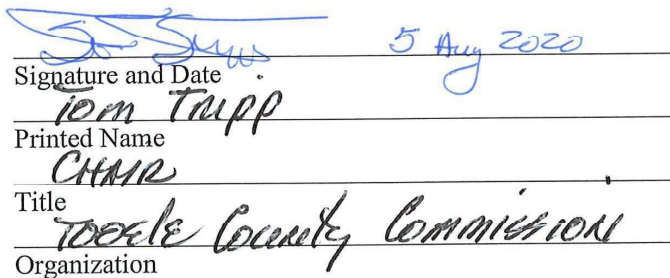 5 Aug 2020
Signature and Date
Tom Tripp
Printed Name
CHAIR
Title
TOOELE County Commission
Organization